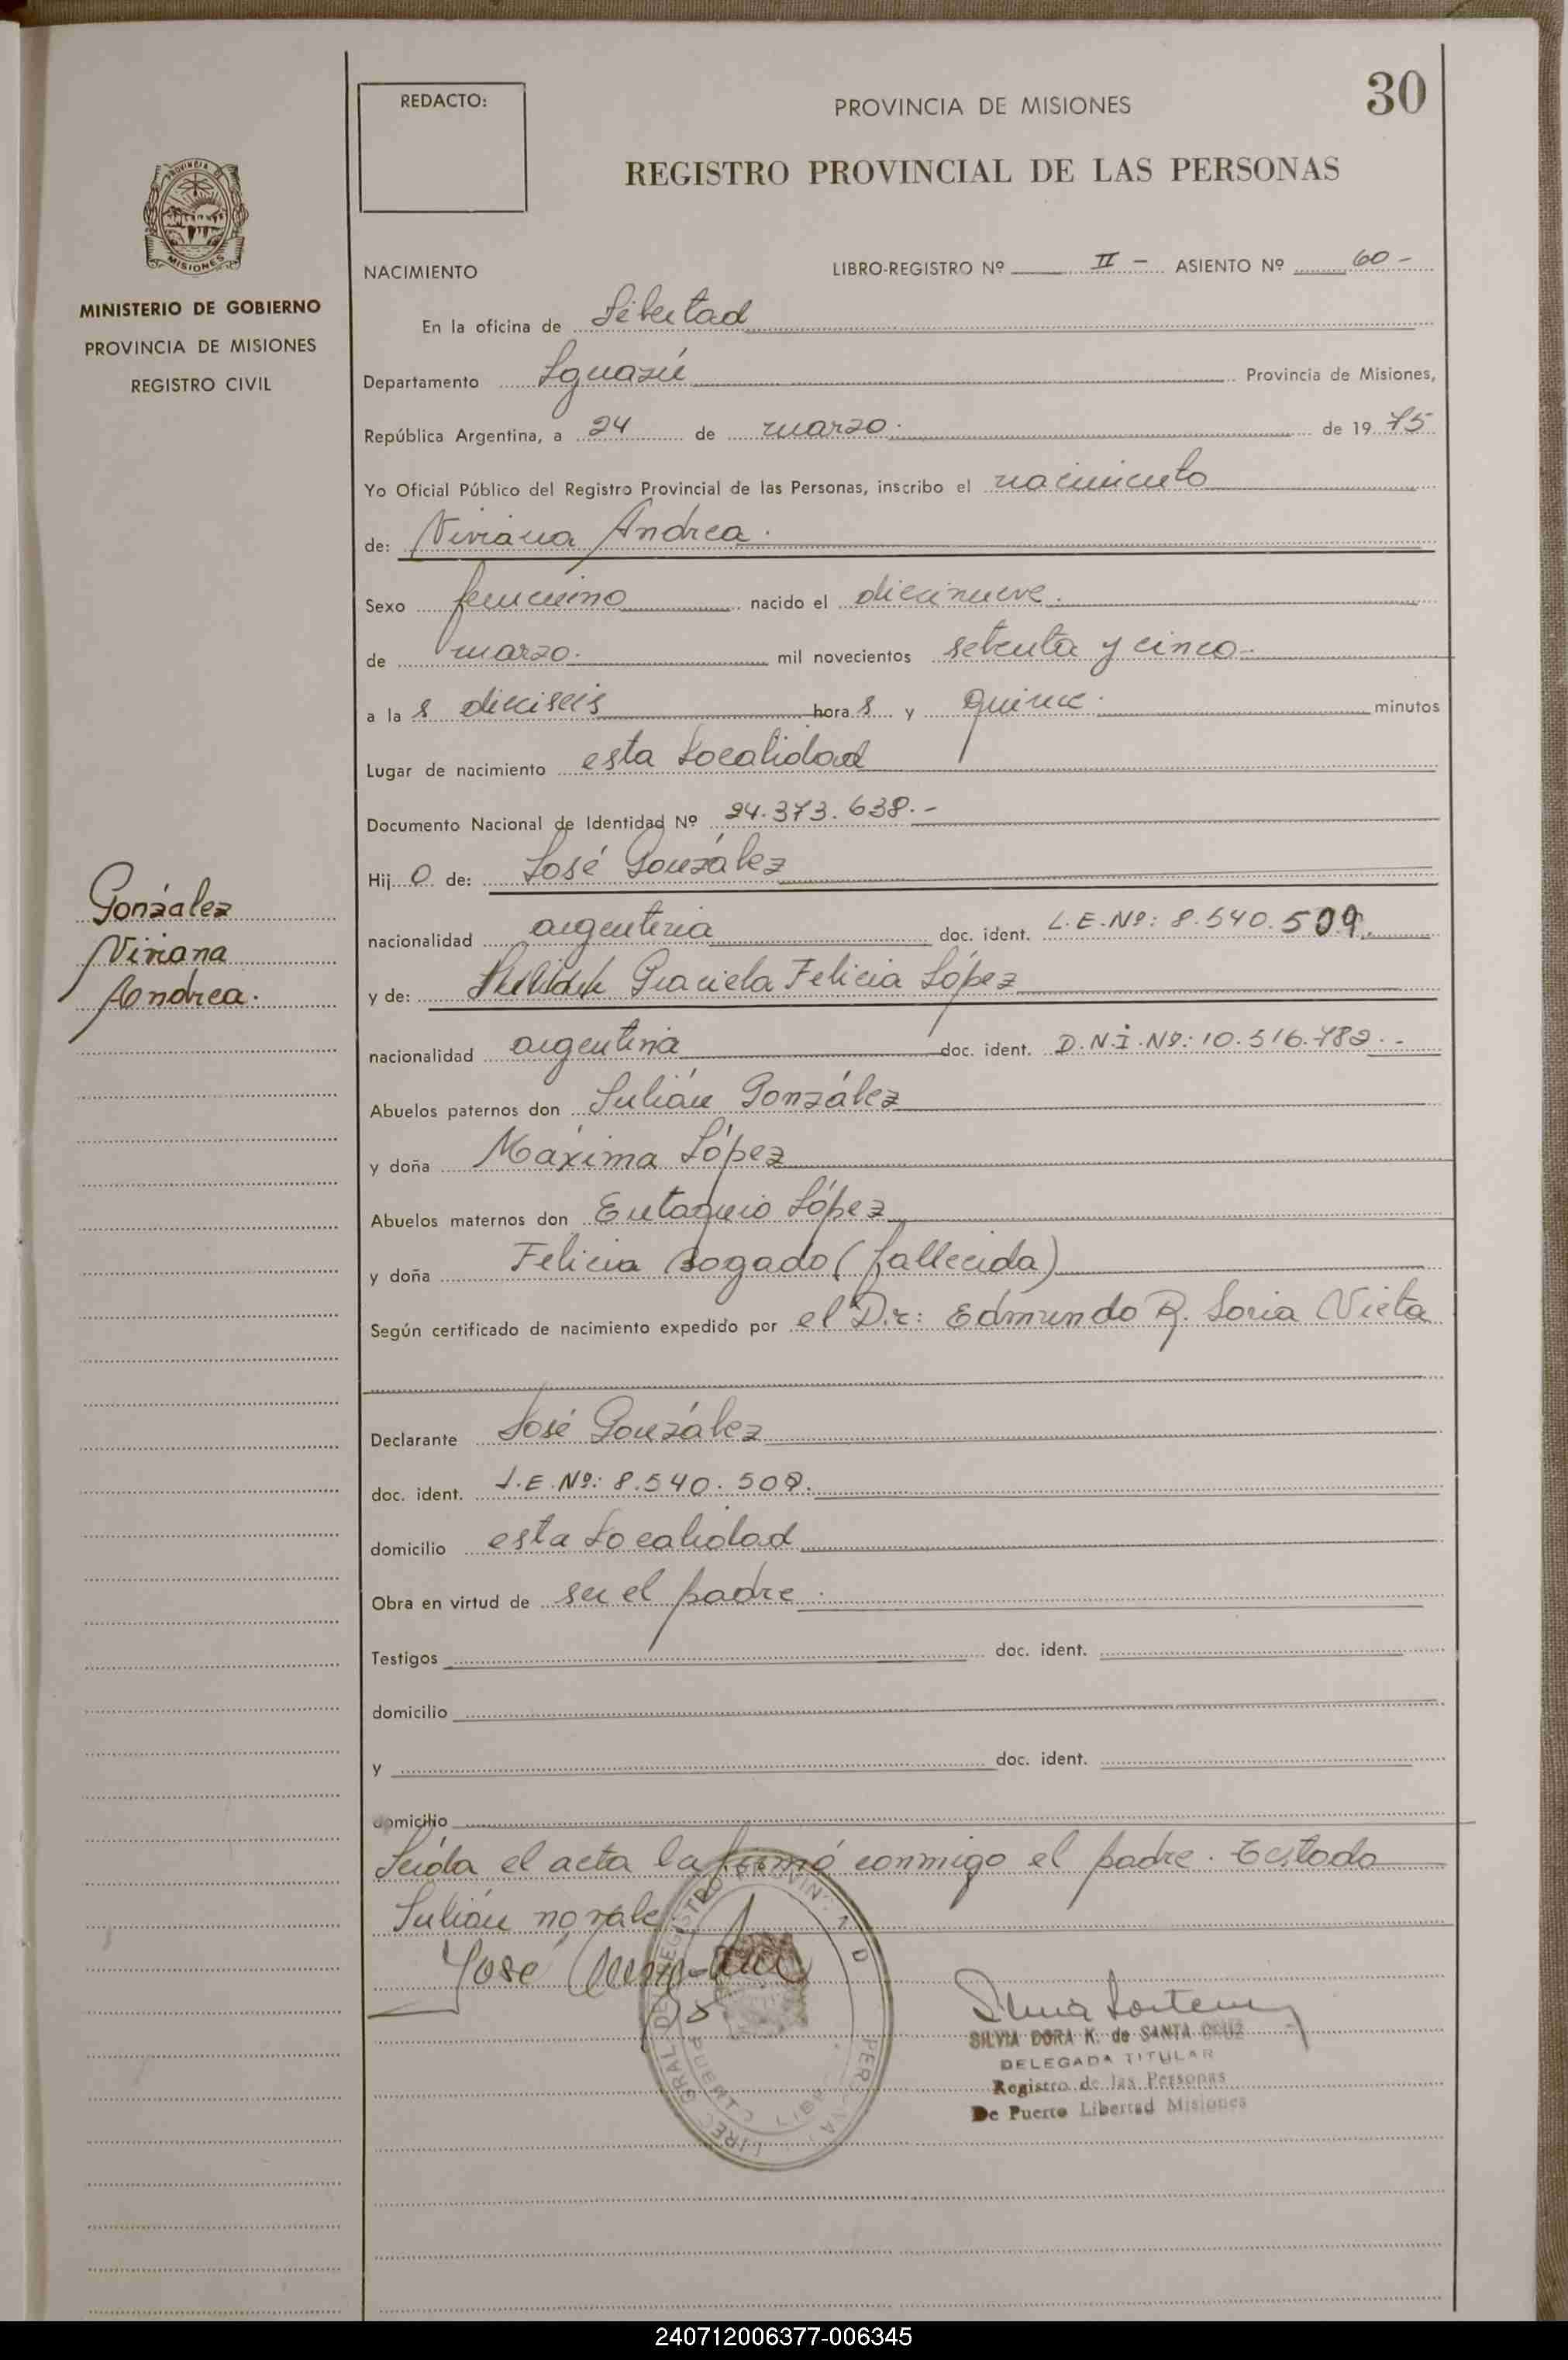 30
REDACTO:
PROVINCIA DE MISIONES
REGISTRO PROVINCIAL DE LAS PERSONAS
PROVINCIA
MISIONES
MINISTERIO DE GOBIERNO
PROVINCIA DE MISIONES
REGISTRO CIVIL
NACIMIENTO LIBRO-REGISTRO Nº II - ASIENTO Nº 60 -
En la oficina de Libertad
Departamento Iguazú Provincia de Misiones,
República Argentina, a 24 de marzo. de 19 75
Yo Oficial Público del Registro Provincial de las Personas, inscribo el nacimiento
de: Viviana Andrea.
Sexo femenino nacido el diecinueve.
de marzo. mil novecientos setenta y cinco.
a la s dieciseis hora s y quince. minutos
Lugar de nacimiento esta Localidad
Documento Nacional de Identidad Nº 24.373.638.-
Hij o de: José González
González
Viviana
Andrea.
nacionalidad argentina doc. ident. L.E.Nº: 8.540.509.
y de: Graciela Felicia López
nacionalidad argentina doc. ident. D.N.I.Nº: 10.516.782.-
Abuelos paternos don Julián González
y doña Máxima López
Abuelos maternos don Eutaquio López
y doña Felicia Bogado (fallecida)
Según certificado de nacimiento expedido por el Dr: Edmundo R. Soria Vieta
Declarante José González
doc. ident. L.E.Nº: 8.540.509.
domicilio esta Localidad
Obra en virtud de ser el padre.
Testigos doc. ident.
domicilio
y doc. ident.
domicilio
Leída el acta la firmó conmigo el padre. Testado
Julián no vale
José
SILVIA DORA K. de SANTA CRUZ
DELEGADA TITULAR
Registro de las Personas
De Puerto Libertad Misiones
240712006377-006345